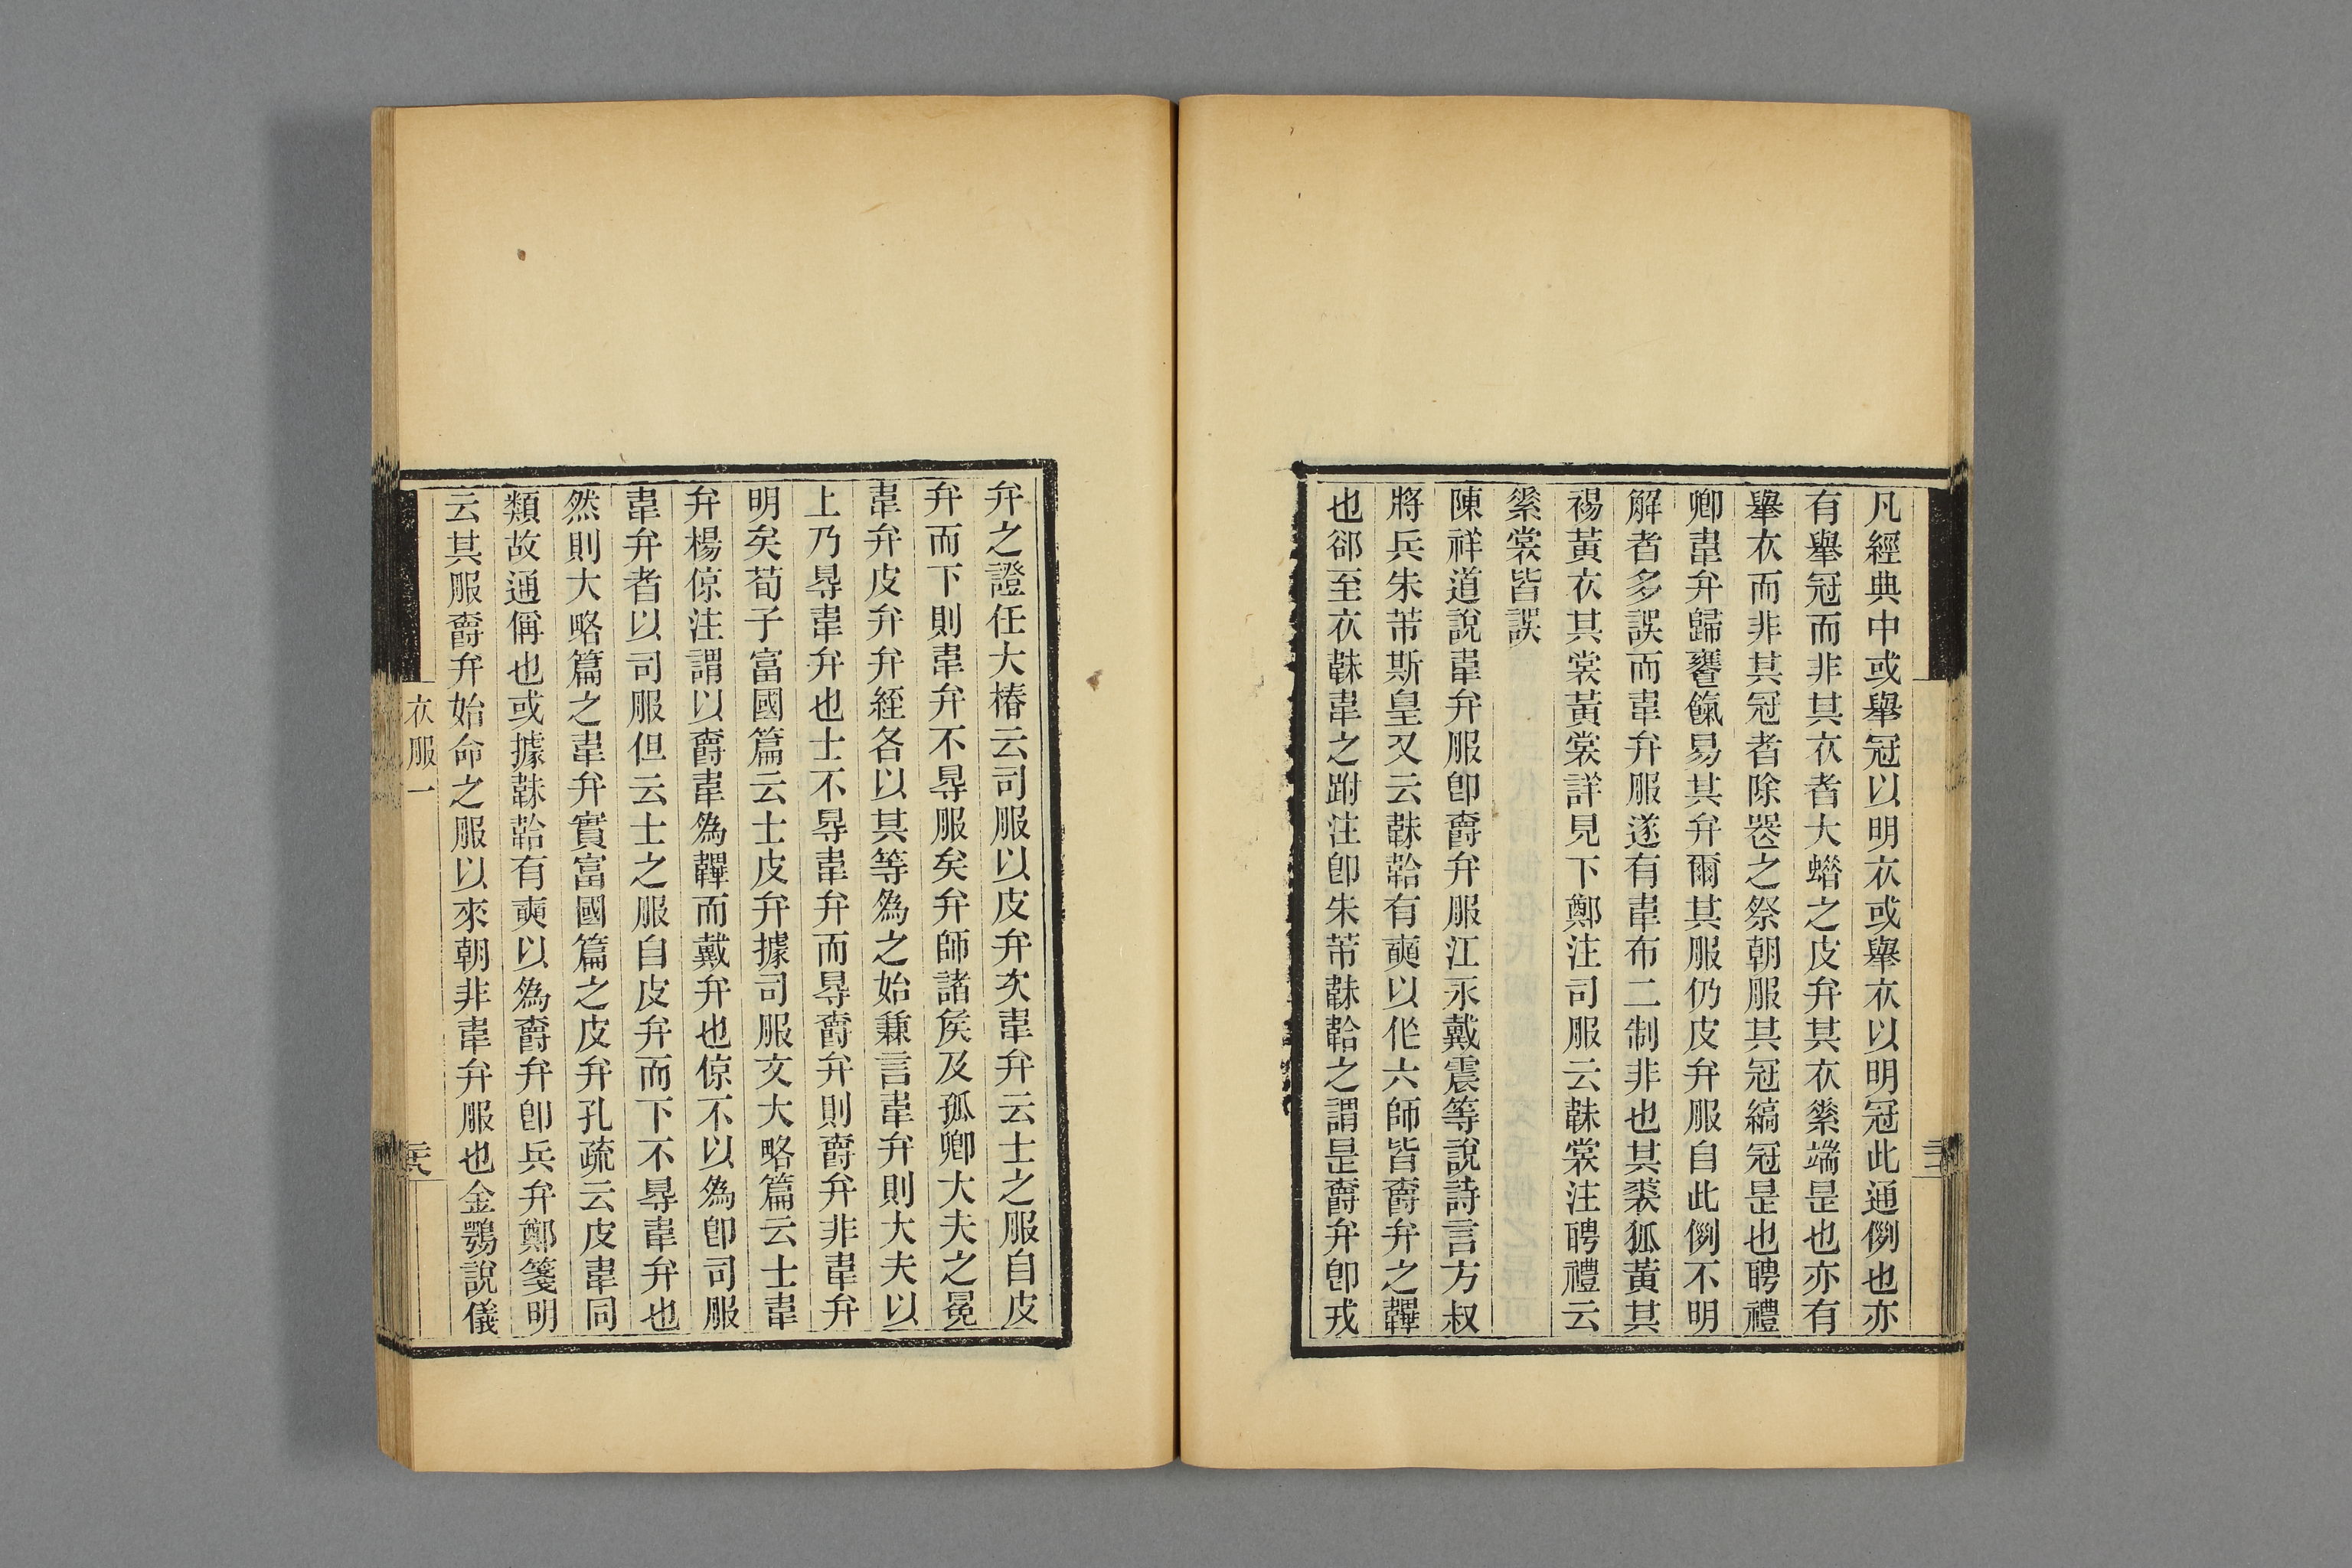 凡經典中或舉冠以明衣或舉衣以明冠此通例也亦
有舉冠而非其衣者大蜡之皮弁其衣素端是也亦有
舉衣而非其冠者除喪之祭朝服其冠縞冠是也聘禮
卿韋弁歸饔餼易其弁爾其服仍皮弁服自此例不明
解者多誤而韋弁服遂有韋布二制非也其裘狐黃其
裼黃衣其裳黃裳詳見下鄭注司服云韎裳注聘禮云
素裳皆誤
陳祥道說韋弁服卽爵弁服江永戴震等說詩言方叔
將兵朱芾斯皇又云韎韐有奭以作六師皆爵弁之韠
也郤至衣韎韋之跗注卽朱芾韎韐之謂是爵弁卽戎
弁之證任大椿云司服以皮弁次韋弁云士之服自皮
弁而下則韋弁不得服矣弁師諸侯及孤卿大夫之冕
韋弁皮弁弁絰各以其等為之始兼言韋弁則大夫以
上乃得韋弁也士不得韋弁而得爵弁則爵弁非韋弁
明矣荀子富國篇云士皮弁據司服文大略篇云士韋
弁楊倞注謂以爵韋為韠而戴弁也倞不以為卽司服
韋弁者以司服但云士之服自皮弁而下不得韋弁也
然則大略篇之韋弁實富國篇之皮弁孔疏云皮韋同
類故通偁也或據韎韐有奭以為爵弁卽兵弁鄭箋明
云其服爵弁始命之服以來朝非韋弁服也金鶚說儀
衣服一